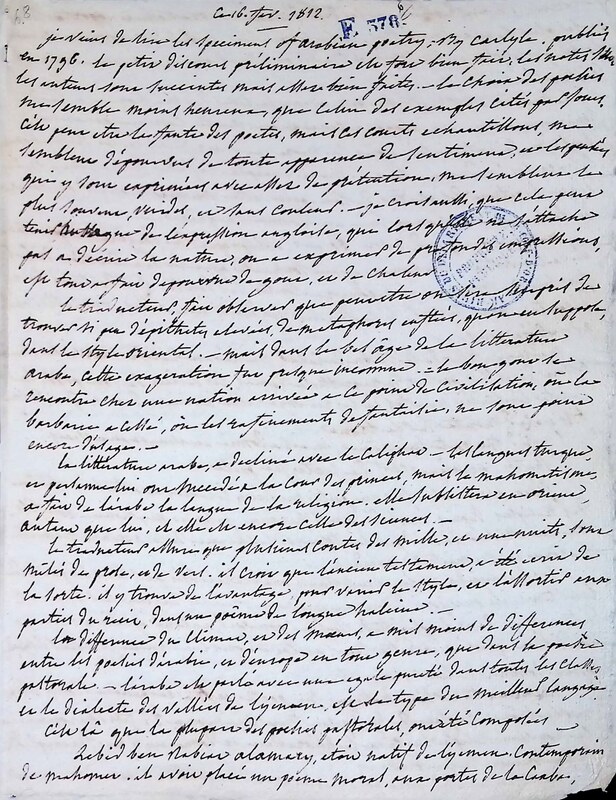 68
ce 16. fev. 1812.
E 378
je viens de lire les specimens of arabian poetry. By Carlyle. publiés
en 1796. le petit discours préliminaire est fort bien fait, les notes sur
les auteurs sont succintes mais assez bien faites. — le choix des poésies
me semble moins heureux, que celui des exemples cités par Jones,
c'est peut être la faute des poetes, mais ces courts echantillons, me
semblent dépourvus de toute apparence de sentiment, et les pensées
qui y sont exprimées avec assez de prétention, me semblent le
plus souvent vuides, et sans couleur. — je crois aussi, que cela peut
tenir au vague de l'expression angloise, qui lorsqu'elle ne s'attache
pas a décrire la nature, ou a exprimer de profondes impressions,
est tout a fait dépourvue de gout, et de chaleur.
le traducteur, fait observer que peut etre on sera surpris de
trouver si peu d'épithetes elevées, de metaphores enflées, qu'on en suppose,
dans le style oriental. — mais dans le bel age de la littérature
arabe, cette exageration fut presque inconnue. — le bon gout se
rencontre chez une nation arrivée a ce point de civilisation, où la
barbarie a cessé, où les rafinements de fantaisie, ne sont point
encore d'usage. —
la littérature arabe, a decliné avec le Califat. — les langues turque,
et persanne lui ont succedé a la Cour des princes, mais le mahometisme,
a fait de l'arabe la langue de la religion, elle subsistera en orient,
autant que lui, et elle est encore celle des sciences. —
le traducteur assure que plusieurs contes des mille et une nuits, sont
mêlés de prose, et de vers. il croit que l'ancien testament, a été ecrit de
la sorte. il y trouve de l'avantage, pour varier le style, et l'assortir aux
parties du récit, dans un poëme de longue haleine. —
la différence du Climat, et des mœurs, a mis moins de différences
entre les poésies d'arabie, et d'europe en tout genre, que dans la poésie
pastorale. — l'arabe est parlé avec une egale pureté dans toutes les classes
et le dialecte des vallées de l'yemen, est le type du meilleur langage
c'est là que la plupart des poésies pastorales, ont été composées —
Lebid ben Rabiat alamary, etoit natif de l'yemen. Contemporain
de mahomet. il avoit placé un poeme moral, aux portes de la Caaba,